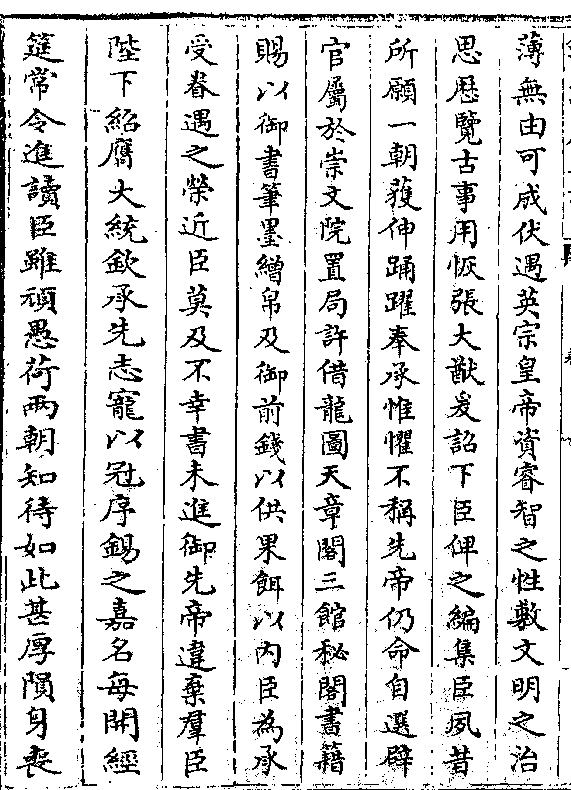 薄無由可成伏遇英宗皇帝資睿智之性敷文明之治
思歷覽古事用恢張大猷爰詔下臣俾之編集臣夙昔
所願一朝獲伸踊躍奉承惟懼不稱先帝仍命自選辟
官屬於崇文院置局許借龍圖天章閣三館秘閣書籍
賜以御書筆墨繒帛及御前錢以供果餌以內臣為承
受眷遇之榮近臣莫及不幸書未進御先帝違棄羣臣
陛下紹膺大統欽承先志寵以冠序錫之嘉名每開經
筵常令進讀臣雖頑愚荷兩朝知待如此甚厚隕身喪